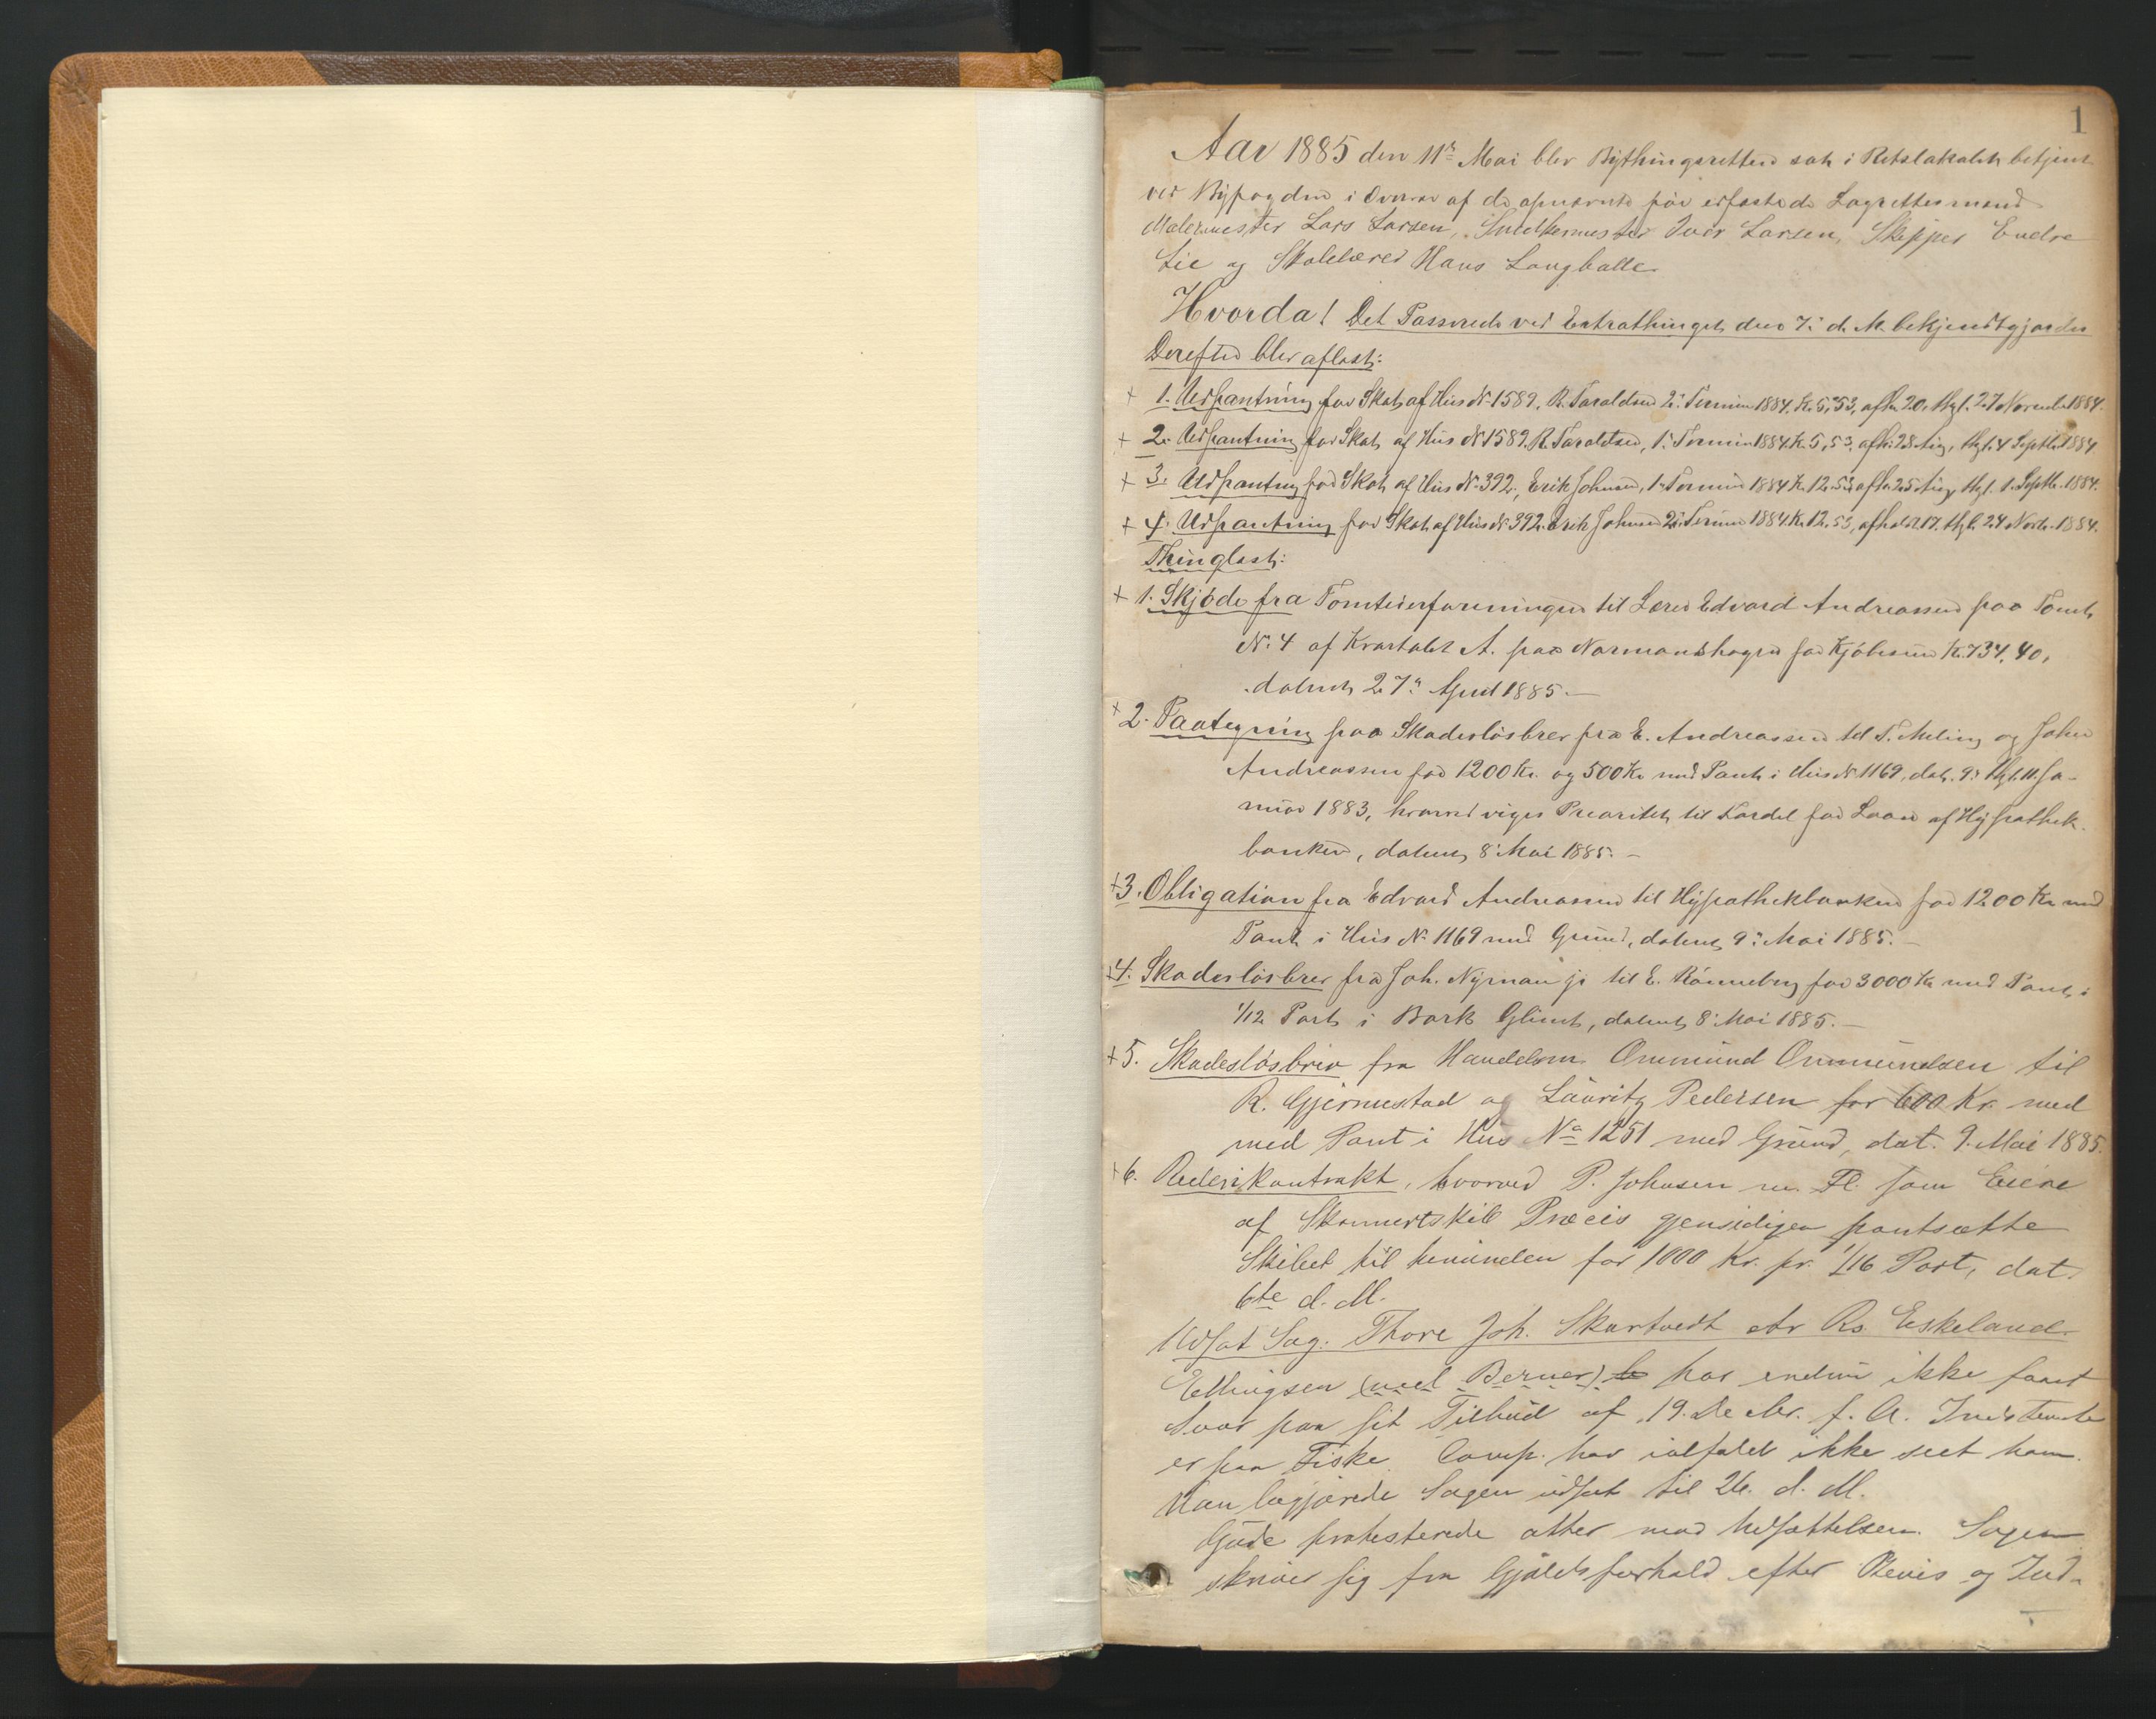 1
Aar 1885 den 11te Mai blev Bythingsretten sat i Retslokalet betjent
ved Byfogden i Overvær af de opnævnte før edfæstede Lagrettesmænd
Malermester Lars Larsen, Snedkermester Iver Larsen, Skipper Endre
Lie og Skolelærer Hans Langballe.
Hvorda! Det Passerede ved Extrathinget den 7: d. M. bekjendtgjordes
Derefter blev aflæst:
+ 1. Udpantning for Skat af Hus No 1589, R. Taraldsen 2: Termin 1884, K. 5,53, afh. 20, thgl. 27 Novembr 1884.
+ 2. Udpantning for Skat af Hus No 1589. R. Taraldsen, 1: Termin 1884 K. 5,53, afh. 28 Aug, thgl. 4 Septbr 1884.
+ 3. Udpantning for Skat af Hus No. 392, Erik Johnsen, 1: Termin 1884 K. 12.53 afh. 25 Aug, thgl. 1. Septbr. 1884.
+ 4. Udpantning for Skat af Hus No 392. Erik Johnsen 2: Termin 1884. K. 12.53, afholdt 17. thgl. 24 Novbr. 1884.
Thinglæst:
+ 1. Skjøde fra Tomteierforeningen til Lærer Edvard Andreassen paa Tomt
No. 4 af Kvartalet A. paa Normandshagen for Kjøbesum K. 734,40,
dateret 27: April 1885.—
+ 2. Paategning paa Skadesløsbrev fra E. Andreassen til T. Meling og John
Andreassen for 1200 Kr. og 500 Kr med Pant i Hus No 1169, dat. 9: thgl. 11. Ja-
nuar 1883, hvorved viges Prioritet til Fordel for Laan af Hypothek-
banken, dateret 8: Mai 1885. —
+ 3. Obligation fra Edvard Andreassen til Hypothekbanken for 1200 Kr med
Pant i Hus No 1169 med Grund, dateret 9: Mai 1885. —
+ 4. Skadesløsbrev fra Joh. Nyman jr til E. Rønneberg for 3000 Kr med Pant i
1/12 Part i Bark Glimt, dateret 8: Mai 1885. —
+ 5. Skadesløsbrev fra Handelsm. Ommund Ommundsen til
R. Gjermestad og Lauritz Pedersen for 600 Kr. med
med Pant i Hus No 1251 med Grund, dat. 9. Mai 1885.
+ 6. Rederikontrakt, hvorved P. Johnsen m. Fl. som Eiere
af Skonnertskib Præcis gjensidigen pantsætte
Skibet til hinanden for 1000 Kr. pr. 1/16 Part, dat.
6te d. M.
Udsat Sag: Thore Joh. Skartvedt ctr Rs. Eskeland.
Ellingsen (med Berner) har endnu ikke faaet
Svar paa sit Tilbud af 19. Decbr. f. A. Indstevnte
er paa Fiske. Comp. har ialfald ikke seet ham.
Han begjærede Sagen udsat til 26. d. M.
Gude protesterede atter mod Udsættelsen. Sagen
skriver sig fra Gjældsforhold efter Bevis og Ind-